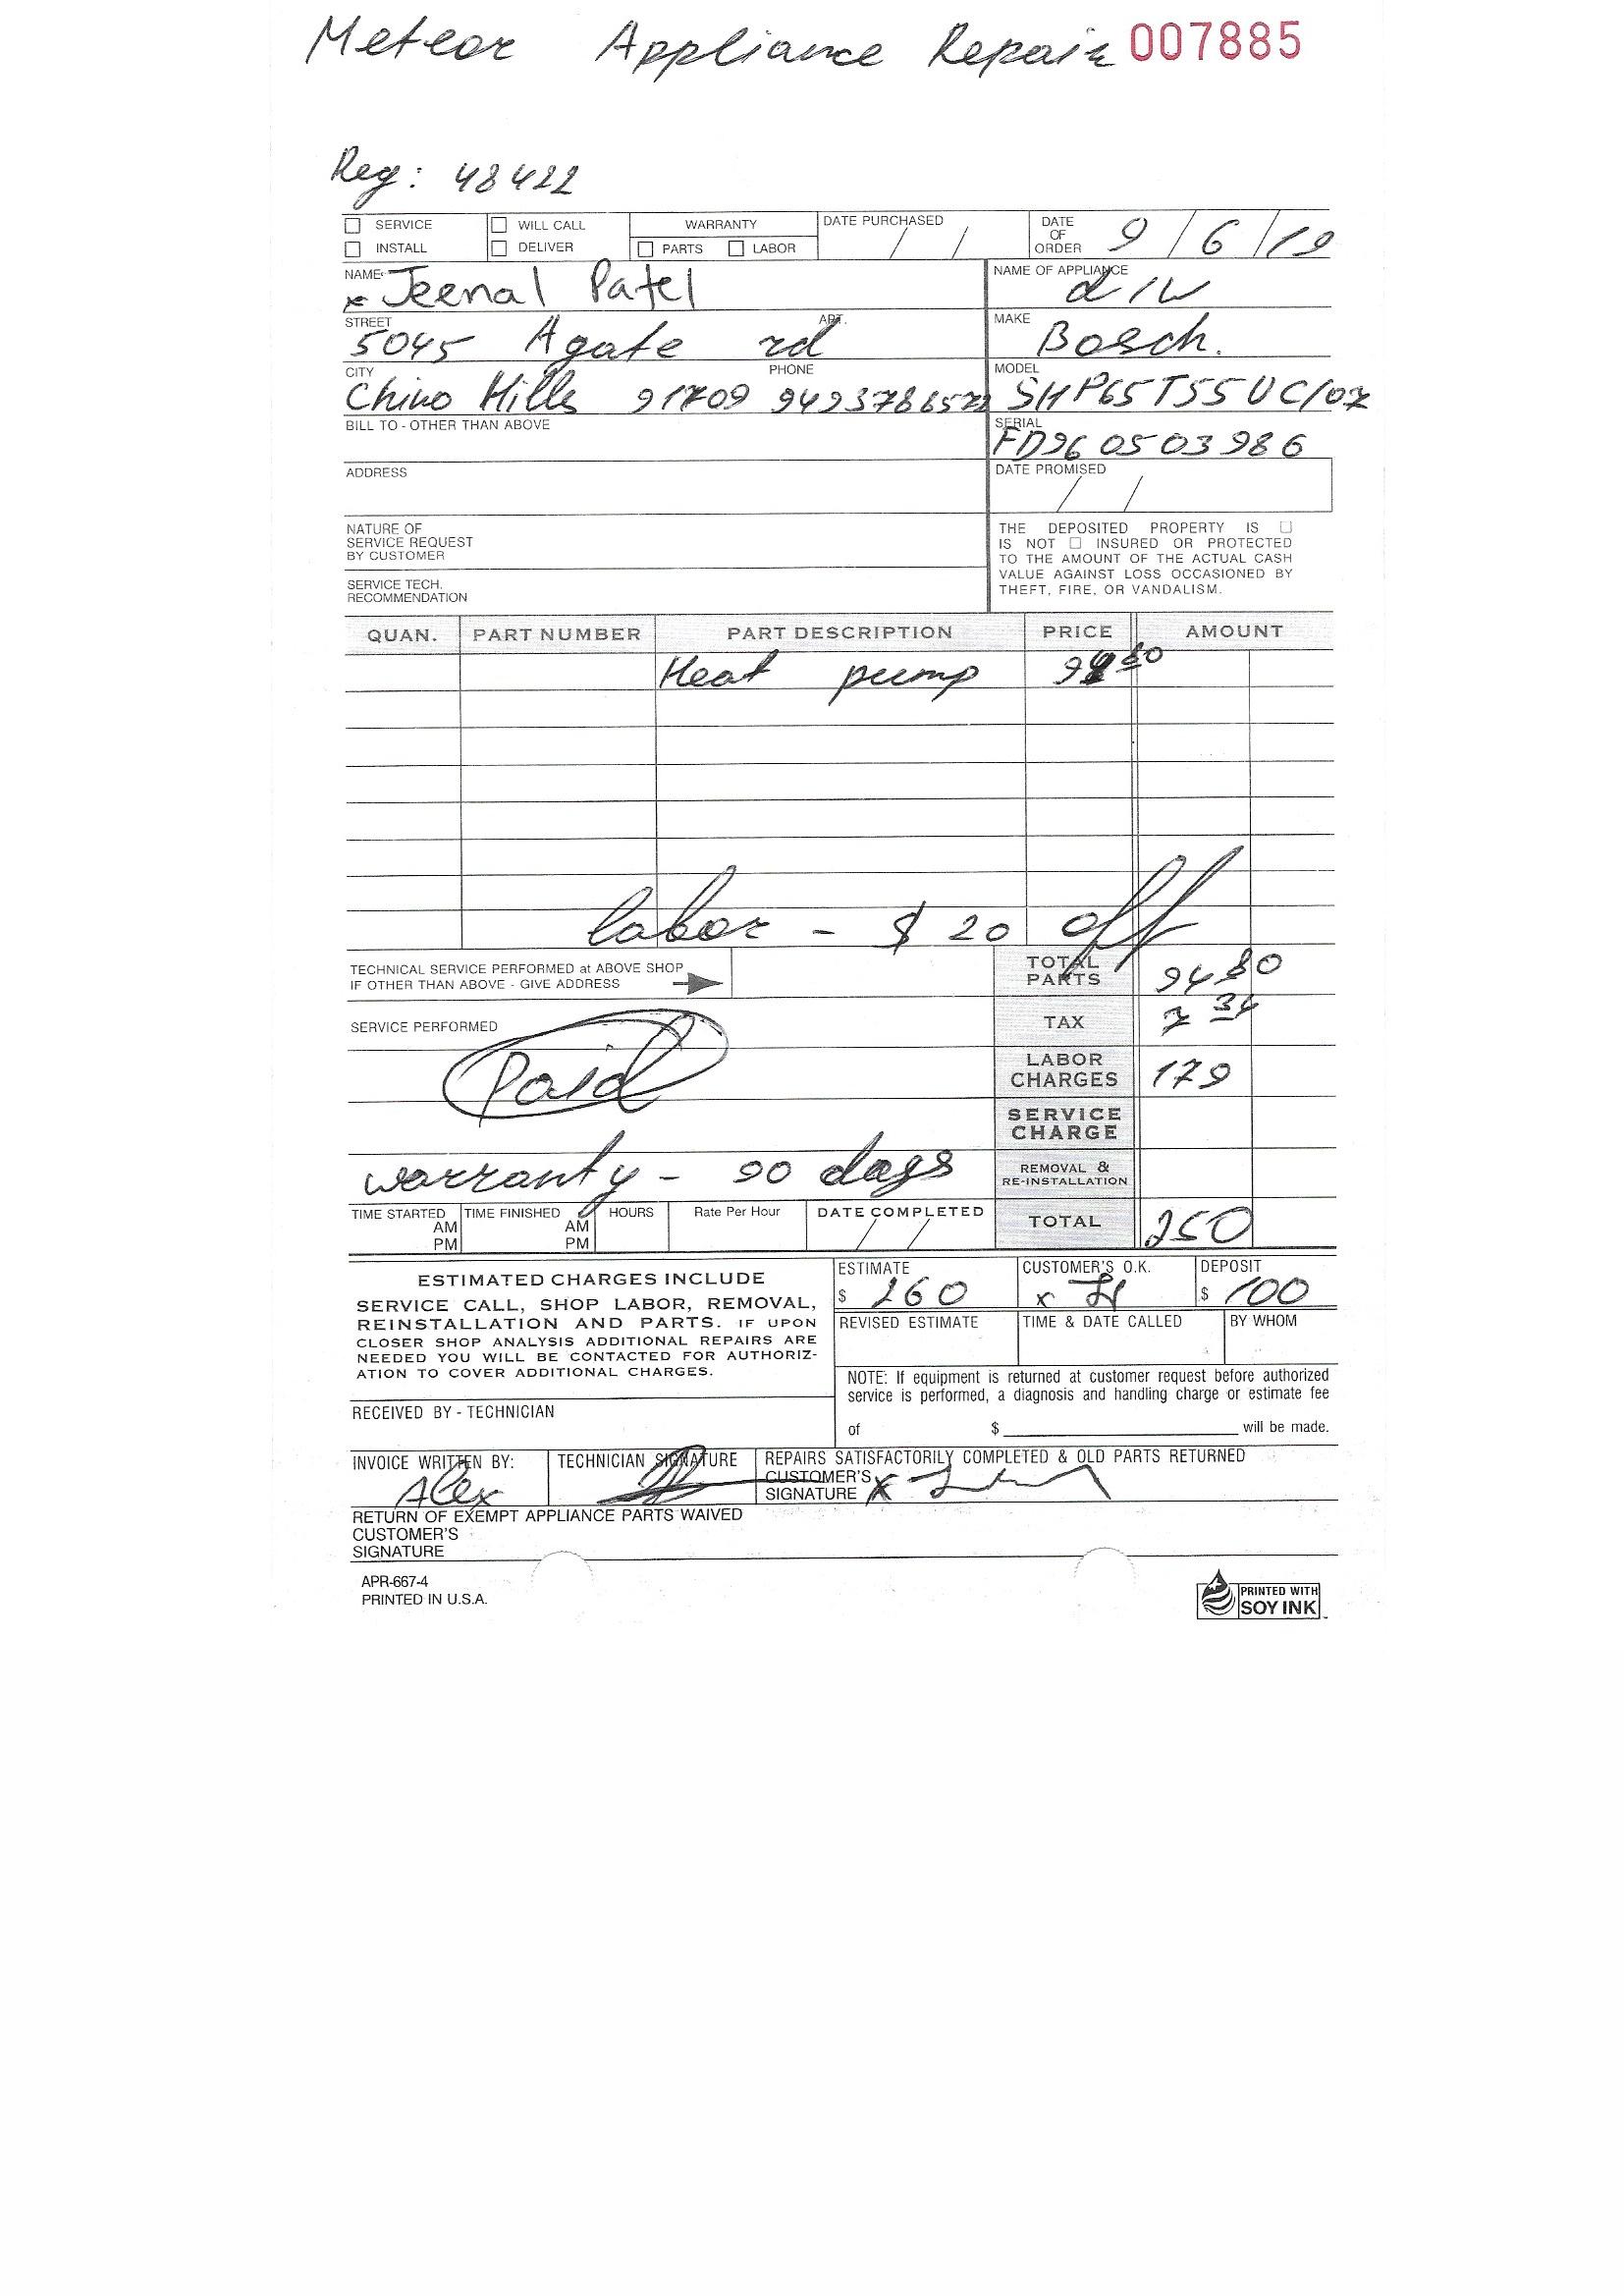 Meteor Appliance Repair 007885
Reg: 48422
SERVICE WILL CALL WARRANTY DATE PURCHASED DATE OF ORDER 9/6/19
INSTALL DELIVER PARTS LABOR / /
NAME x Jeenal Patel NAME OF APPLIANCE d/w
STREET 5045 Agate rd APT. MAKE Bosch.
CITY Chino Hills 91709 PHONE MODEL SHP65T55UC/07
BILL TO - OTHER THAN ABOVE SERIAL FD960503986
ADDRESS DATE PROMISED / /
NATURE OF
SERVICE REQUEST
BY CUSTOMER
SERVICE TECH.
RECOMMENDATION
THE DEPOSITED PROPERTY IS
IS NOT INSURED OR PROTECTED
TO THE AMOUNT OF THE ACTUAL CASH
VALUE AGAINST LOSS OCCASIONED BY
THEFT, FIRE, OR VANDALISM.
QUAN. PART NUMBER PART DESCRIPTION PRICE AMOUNT
Heat pump
labor - $20 off
TECHNICAL SERVICE PERFORMED at ABOVE SHOP
IF OTHER THAN ABOVE - GIVE ADDRESS
TOTAL PARTS 94 80
SERVICE PERFORMED TAX 7 34
Paid LABOR CHARGES 179
SERVICE CHARGE
warranty - 90 days REMOVAL & RE-INSTALLATION
TIME STARTED AM PM TIME FINISHED AM PM HOURS Rate Per Hour DATE COMPLETED / / TOTAL 250
ESTIMATED CHARGES INCLUDE
SERVICE CALL, SHOP LABOR, REMOVAL,
REINSTALLATION AND PARTS. IF UPON
CLOSER SHOP ANALYSIS ADDITIONAL REPAIRS ARE
NEEDED YOU WILL BE CONTACTED FOR AUTHORIZ-
ATION TO COVER ADDITIONAL CHARGES.
ESTIMATE $ 260 CUSTOMER'S O.K. x DEPOSIT $ 100
REVISED ESTIMATE TIME & DATE CALLED BY WHOM
NOTE: If equipment is returned at customer request before authorized
service is performed, a diagnosis and handling charge or estimate fee
of $ will be made.
RECEIVED BY - TECHNICIAN
INVOICE WRITTEN BY: Alex TECHNICIAN SIGNATURE REPAIRS SATISFACTORILY COMPLETED & OLD PARTS RETURNED
CUSTOMER'S
SIGNATURE x
RETURN OF EXEMPT APPLIANCE PARTS WAIVED
CUSTOMER'S
SIGNATURE
APR-667-4
PRINTED IN U.S.A.
PRINTED WITH
SOY INK